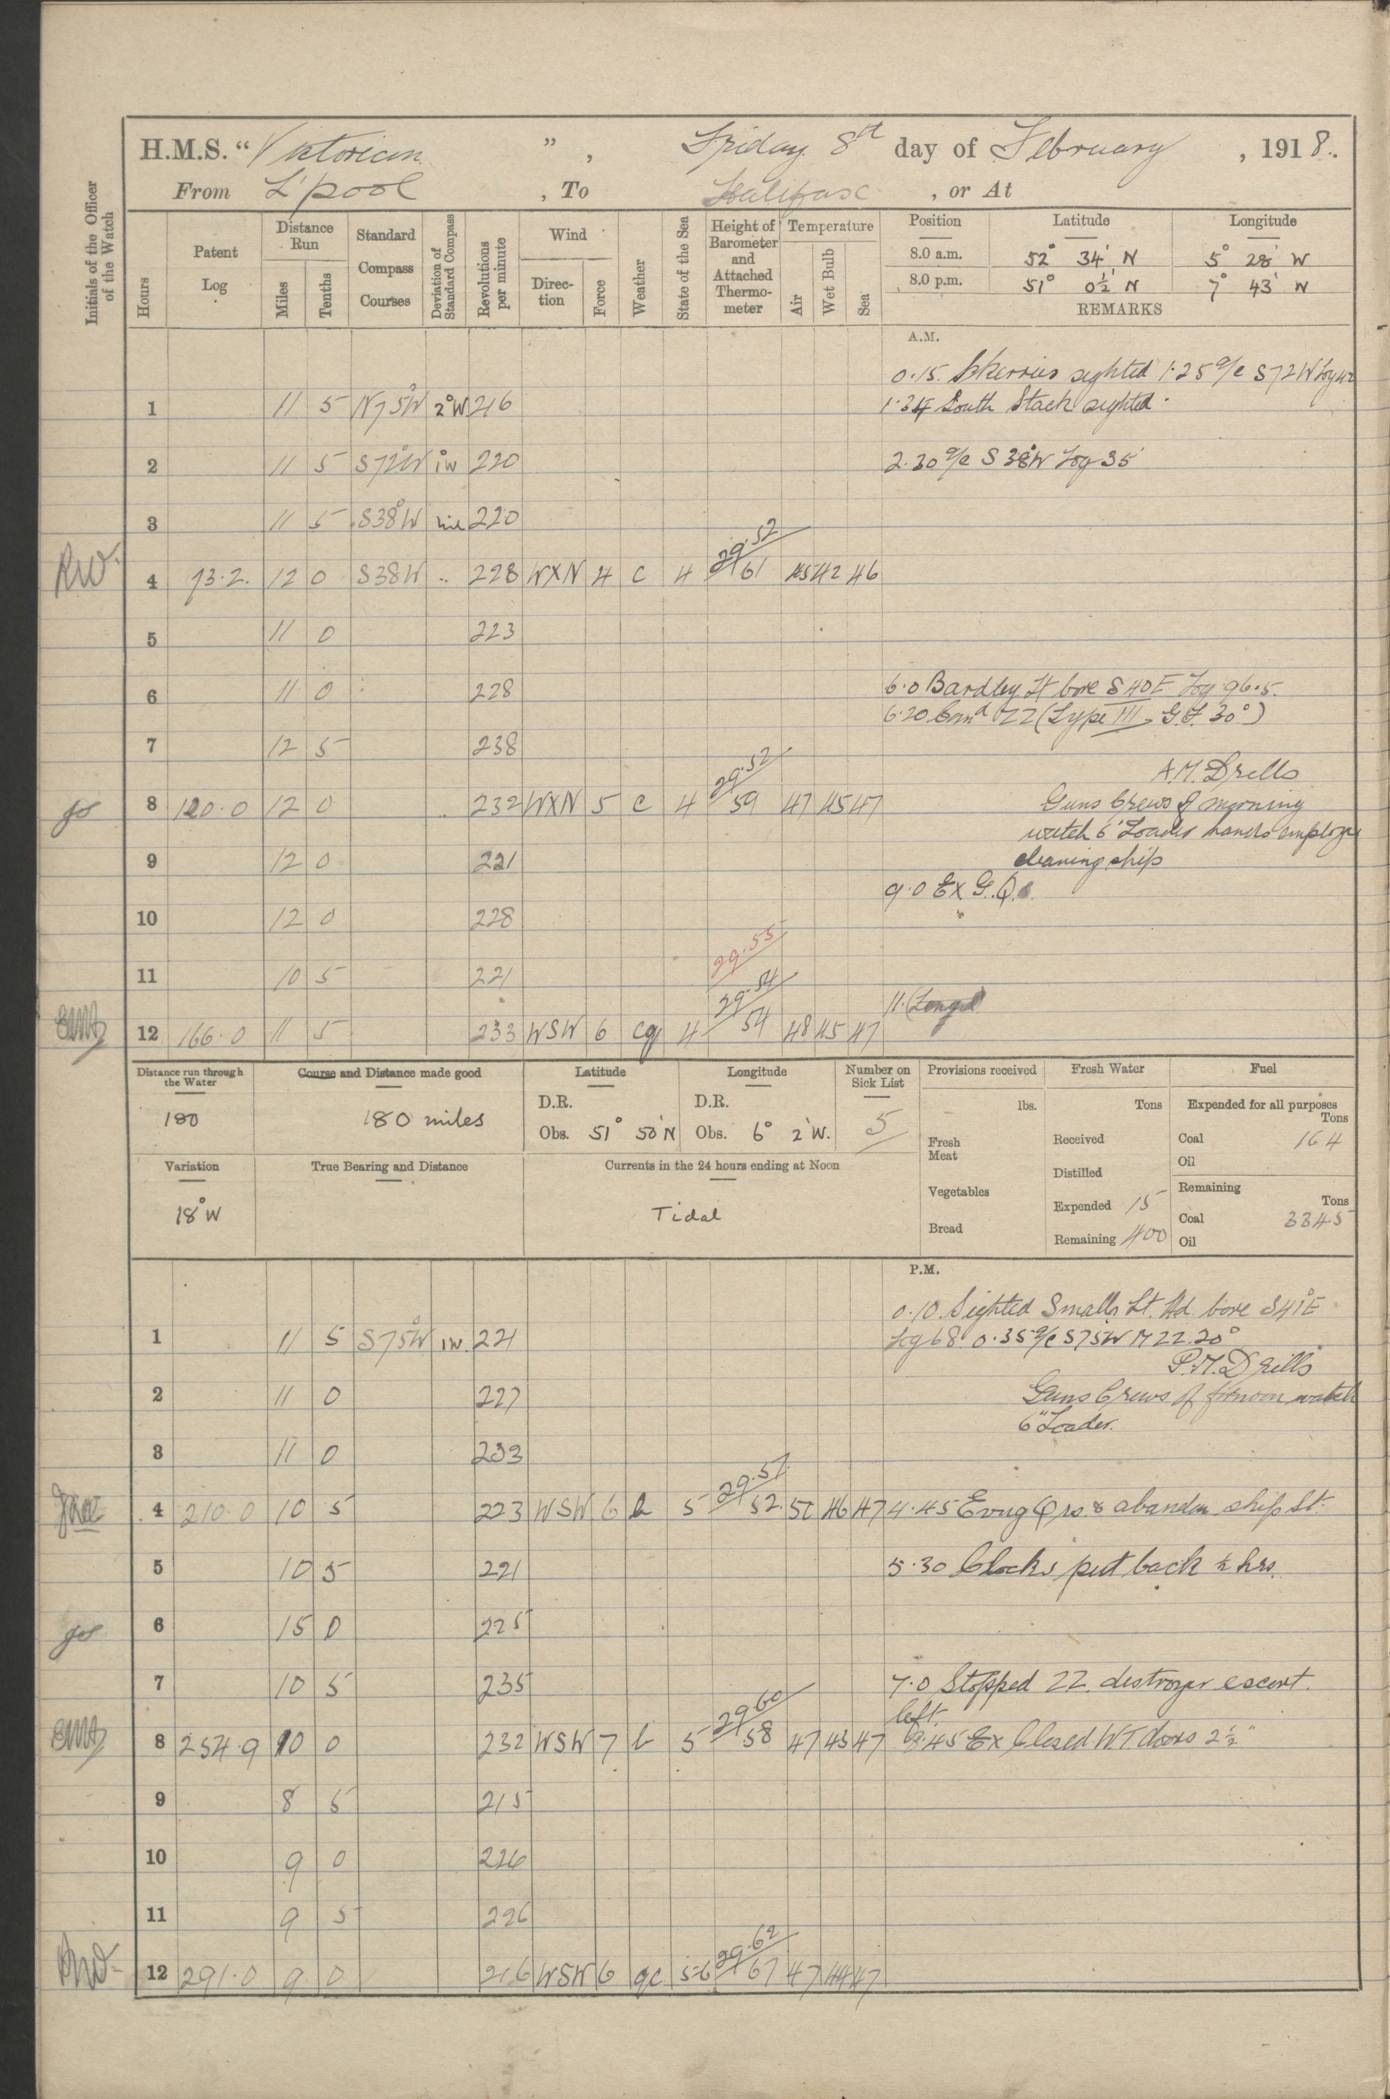 H.M.S. "Victorian", Friday 8th day of February, 1918.
From L'pool, To Halifax, or At
Initials of the Officer of the Watch
Hours
Patent Log
Distance Run
Miles
Tenths
Standard Compass Courses
Deviation of Standard Compass
Revolutions per minute
Wind
Direction
Force
Weather
State of the Sea
Height of Barometer and Attached Thermometer
Temperature
Air
Wet Bulb
Sea
Position Latitude Longitude
8.0 a.m. 52° 34' N 5° 28' W
8.0 p.m. 51° 0½' N 7° 43' W
REMARKS
A.M.
0.15. Skerries sighted 1.25 a/c S72W Log 42
1 11 5 N75°W 2°W 216 1.34 South Stack sighted.
2 11 5 S72°W 1°W 220 2.30 a/c S38°W Log 35
3 11 5 S38°W nil 220
4 73.2. 12 0 S38W .. 228 WXN 4 c 4 29.52 61 45 42 46
5 11 0 223
6 11 0 228 6.0 Bardley Lt bore S40E Log 96.5.
6.20 Comd ZZ (Type III G.F. 30°)
7 12 5 238
A.M. Drills
8 120.0 12 0 232 WXN 5 c 4 29.52 59 47 45 47 Guns Crews of morning
watch 6" Loader hands employed
9 12 0 221 cleaning ship
9.0 Ex G.Q.
10 12 0 228
11 10 5 221 29.55
12 166.0 11 5 233 WSW 6 cq 4 29.54 54 48 45 47
Distance run through the Water
180
Course and Distance made good
180 miles
Latitude
D.R.
Obs. 51° 50' N
Longitude
D.R.
Obs. 6° 2' W.
Number on Sick List
5
Provisions received
lbs.
Fresh Meat
Vegetables
Bread
Fresh Water
Tons
Received
Distilled
Expended 15
Remaining 400
Fuel
Expended for all purposes
Tons
Coal 164
Oil
Remaining
Tons
Coal 3345
Oil
Variation
18°W
True Bearing and Distance
Currents in the 24 hours ending at Noon
Tidal
P.M.
0.10. Sighted Smalls Lt. Hd. bore S41°E
1 11 5 S75°W 1W. 221 Log 68. 0.35 a/c S75W M ZZ 20°
P.M. Drills
2 11 0 227 Guns Crews of forenoon watch
6" Loader.
3 11 0 233
4 210.0 10 5 223 WSW 6 b 5 29.57 52 50 46 47 4.45 Evng Qrs. & abandon ship St.
5 10 5 221 5.30 Clocks put back ½ hrs.
6 15 0 225
7 10 5 235 7.0 Stopped ZZ. destroyer escort
left.
8 254.9 10 0 232 WSW 7 b 5 29.60 58 47 43 47 7.45 Ex Closed WT doors 2½"
9 8 5 215
10 9 0 226
11 9 5 226
12 291.0 9 0 216 WSW 6 qc 5-6 29.62 67 47 44 47